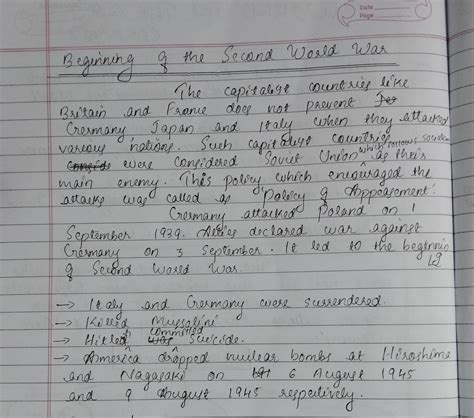 Date
Page
Beginning of the Second World War
The capitalist countries like
Britain and France does not prevent
Germany Japan and Italy when they attacked
various nations. Such capitalist countries
were considered Soviet Union which follows socialism as their
main enemy. This policy which encouraged the
attacks was called as 'Policy of Appeasment'.
Germany attacked Poland on 1
September 1939. Allies declared war against
Germany on 3 September. It led to the beginning
of Second World War.
→ Italy and Germany were surrendered.
→ Killed Mussolini
→ Hitler committed suicide.
→ America dropped nuclear bombs at Hiroshima
and Nagasaki on 6 August 1945
and 9 August 1945 respectively.